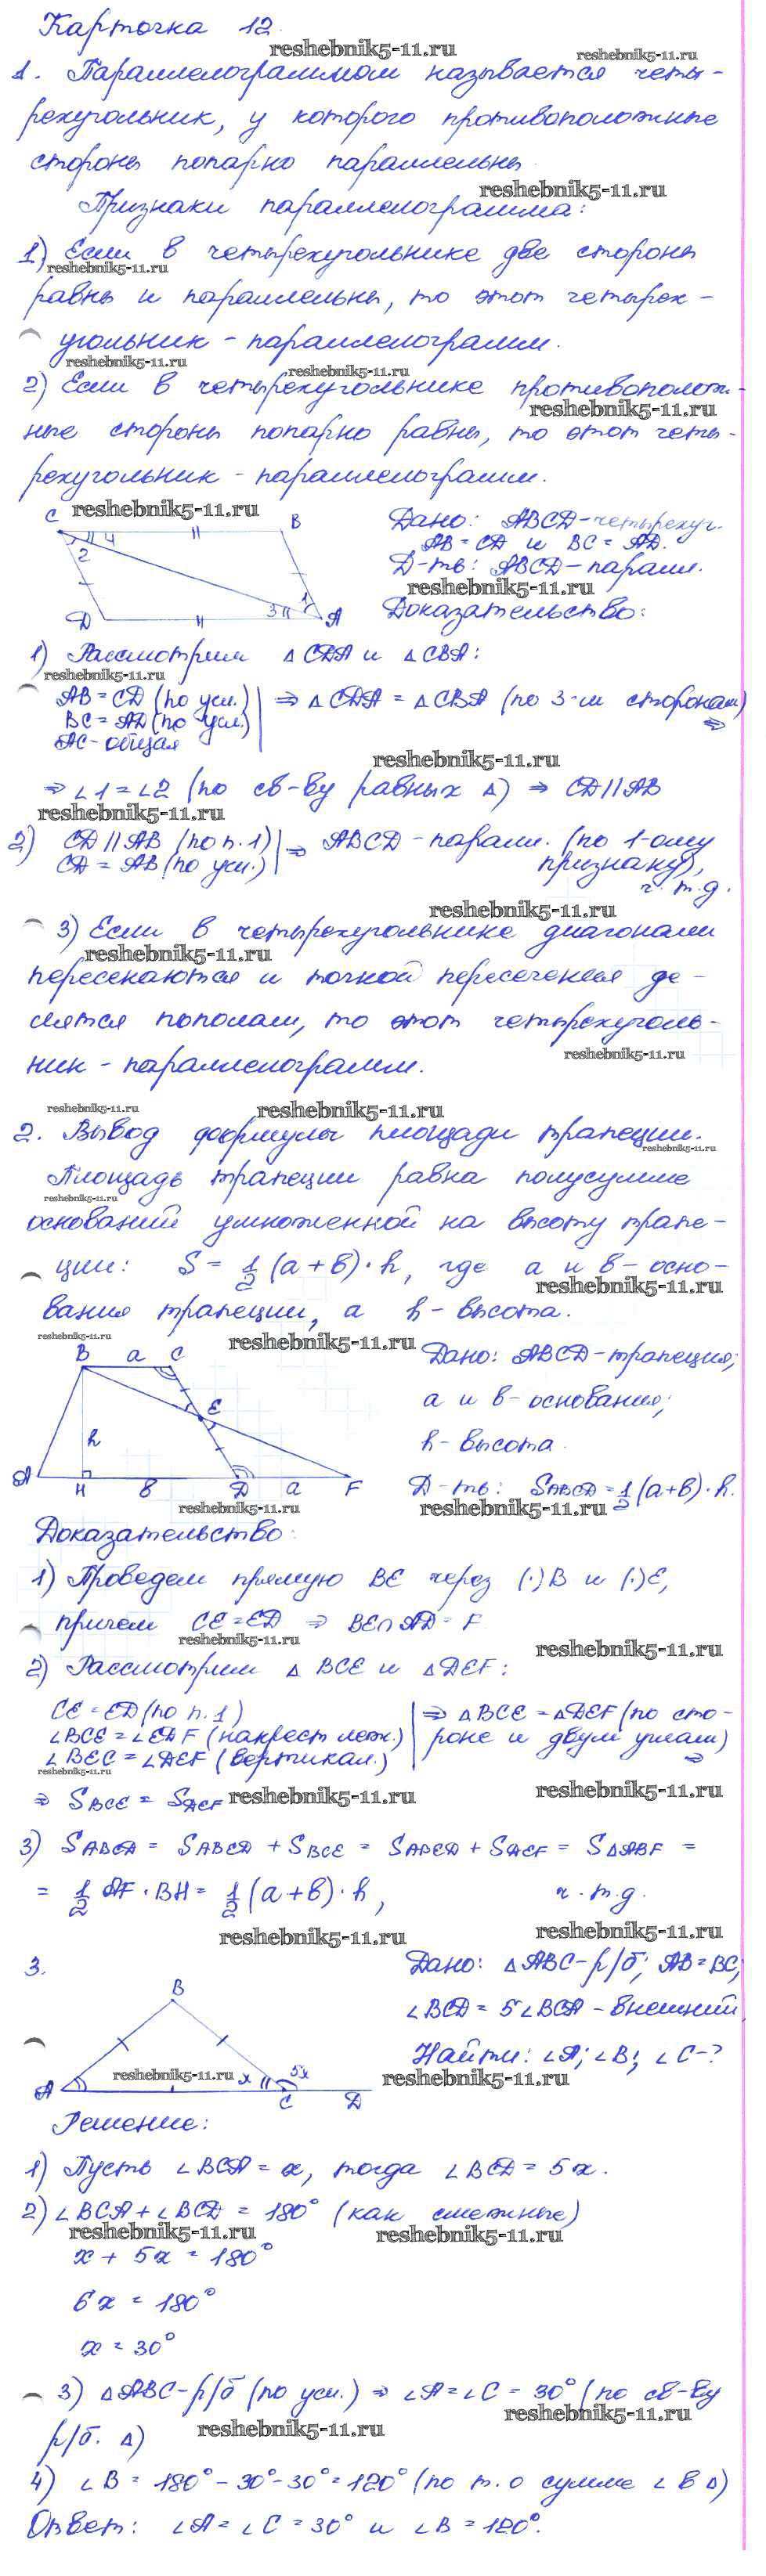 Карточка 12
reshebnik5-11.ru
reshebnik5-11.ru
1. Параллелограммом называется четы-
рехугольник, у которого противоположные
стороны попарно параллельны
reshebnik5-11.ru
Признаки параллелограмма:
1) Если в четырехугольнике две стороны
reshebnik5-11.ru
равны и параллельны, то этот четырех-
угольник - параллелограмм.
reshebnik5-11.ru
reshebnik5-11.ru
2) Если в четырехугольнике противополож-
reshebnik5-11.ru
ные стороны попарно равны, то этот четы-
рехугольник - параллелограмм.
reshebnik5-11.ru
C B
4
2
1
3
D A
Дано: ABCD-четырехуг.
AB = CD и BC = AD.
Д-ть: ABCD-парал.
reshebnik5-11.ru
Доказательство:
1) Рассмотрим △CDA и △CBA:
reshebnik5-11.ru
AB = CD (по усл.) | ⇒ △CDA = △CBA (по 3-м сторонам)
BC = AD (по усл.) ⇒
AC-общая
reshebnik5-11.ru
⇒ ∠1 = ∠2 (по св-ву равных △) ⇒ CD || AB
reshebnik5-11.ru
2) CD || AB (по п.1) | ⇒ ABCD - парал. (по 1-ому
CD = AB (по усл.) признаку),
ч.т.д.
reshebnik5-11.ru
3) Если в четырехугольнике диагонали
reshebnik5-11.ru
пересекаются и точкой пересечения де-
лятся пополам, то этот четырехуголь-
reshebnik5-11.ru
ник - параллелограмм.
reshebnik5-11.ru
reshebnik5-11.ru
2. Вывод формулы площади трапеции.
reshebnik5-11.ru
Площадь трапеции равна полусумме
reshebnik5-11.ru
оснований умноженной на высоту трапе-
ции: S = 1/2 (a + b) · h, где a и b - осно-
reshebnik5-11.ru
вания трапеции, а h - высота.
reshebnik5-11.ru
reshebnik5-11.ru
B a C
E
h
A H b D a F
Дано: ABCD-трапеция;
a и b - основания;
h - высота.
Д-ть: SABCD = 1/2 (a+b) · h.
reshebnik5-11.ru
reshebnik5-11.ru
Доказательство:
1) Проведем прямую BE через (·)B и (·)E,
причем CE = ED ⇒ BE∩AD = F
reshebnik5-11.ru
reshebnik5-11.ru
2) Рассмотрим △ BCE и △DEF:
CE = ED (по п.1) | ⇒ △BCE = △DEF (по сто-
∠BCE = ∠EDF (накрест леж.) роне и двум углам)
∠BEC = ∠DEF (вертикал.) ⇒
reshebnik5-11.ru
⇒ SBCE = SDEF
reshebnik5-11.ru
reshebnik5-11.ru
3) SABCD = SABED + SBCE = SABED + SDEF = S△ABF =
= 1/2 AF · BH = 1/2 (a + b) · h, ч.т.д.
reshebnik5-11.ru
reshebnik5-11.ru
3.
B
A x 5x
C D
reshebnik5-11.ru
Дано: △ABC-р/б; AB = BC;
∠BCD = 5∠BCA - внешний
Найти: ∠A; ∠B; ∠C-?
reshebnik5-11.ru
Решение:
1) Пусть ∠BCA = x, тогда ∠BCD = 5x.
2) ∠BCA + ∠BCD = 180° (как смежные)
reshebnik5-11.ru
reshebnik5-11.ru
x + 5x = 180°
6x = 180°
x = 30°
3) △ABC-р/б (по усл.) ⇒ ∠A = ∠C = 30° (по св-ву
reshebnik5-11.ru
р/б. △)
reshebnik5-11.ru
4) ∠B = 180° - 30° - 30° = 120° (по т. о сумме ∠ в △)
Ответ: ∠A = ∠C = 30° и ∠B = 120°.